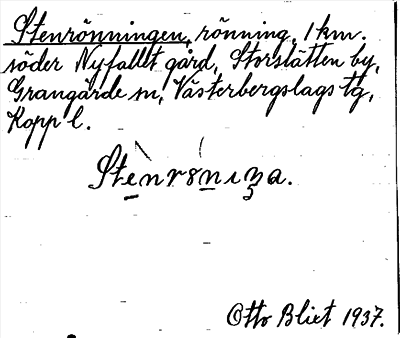 Stenrönningen, rönning, 1 km.
söder Nyfallet gård, Storslätten by,
Grangärde sn, Västerbergslags tg,
Kopp l.
Stenrönıŋa.
Otto Blixt 1937.